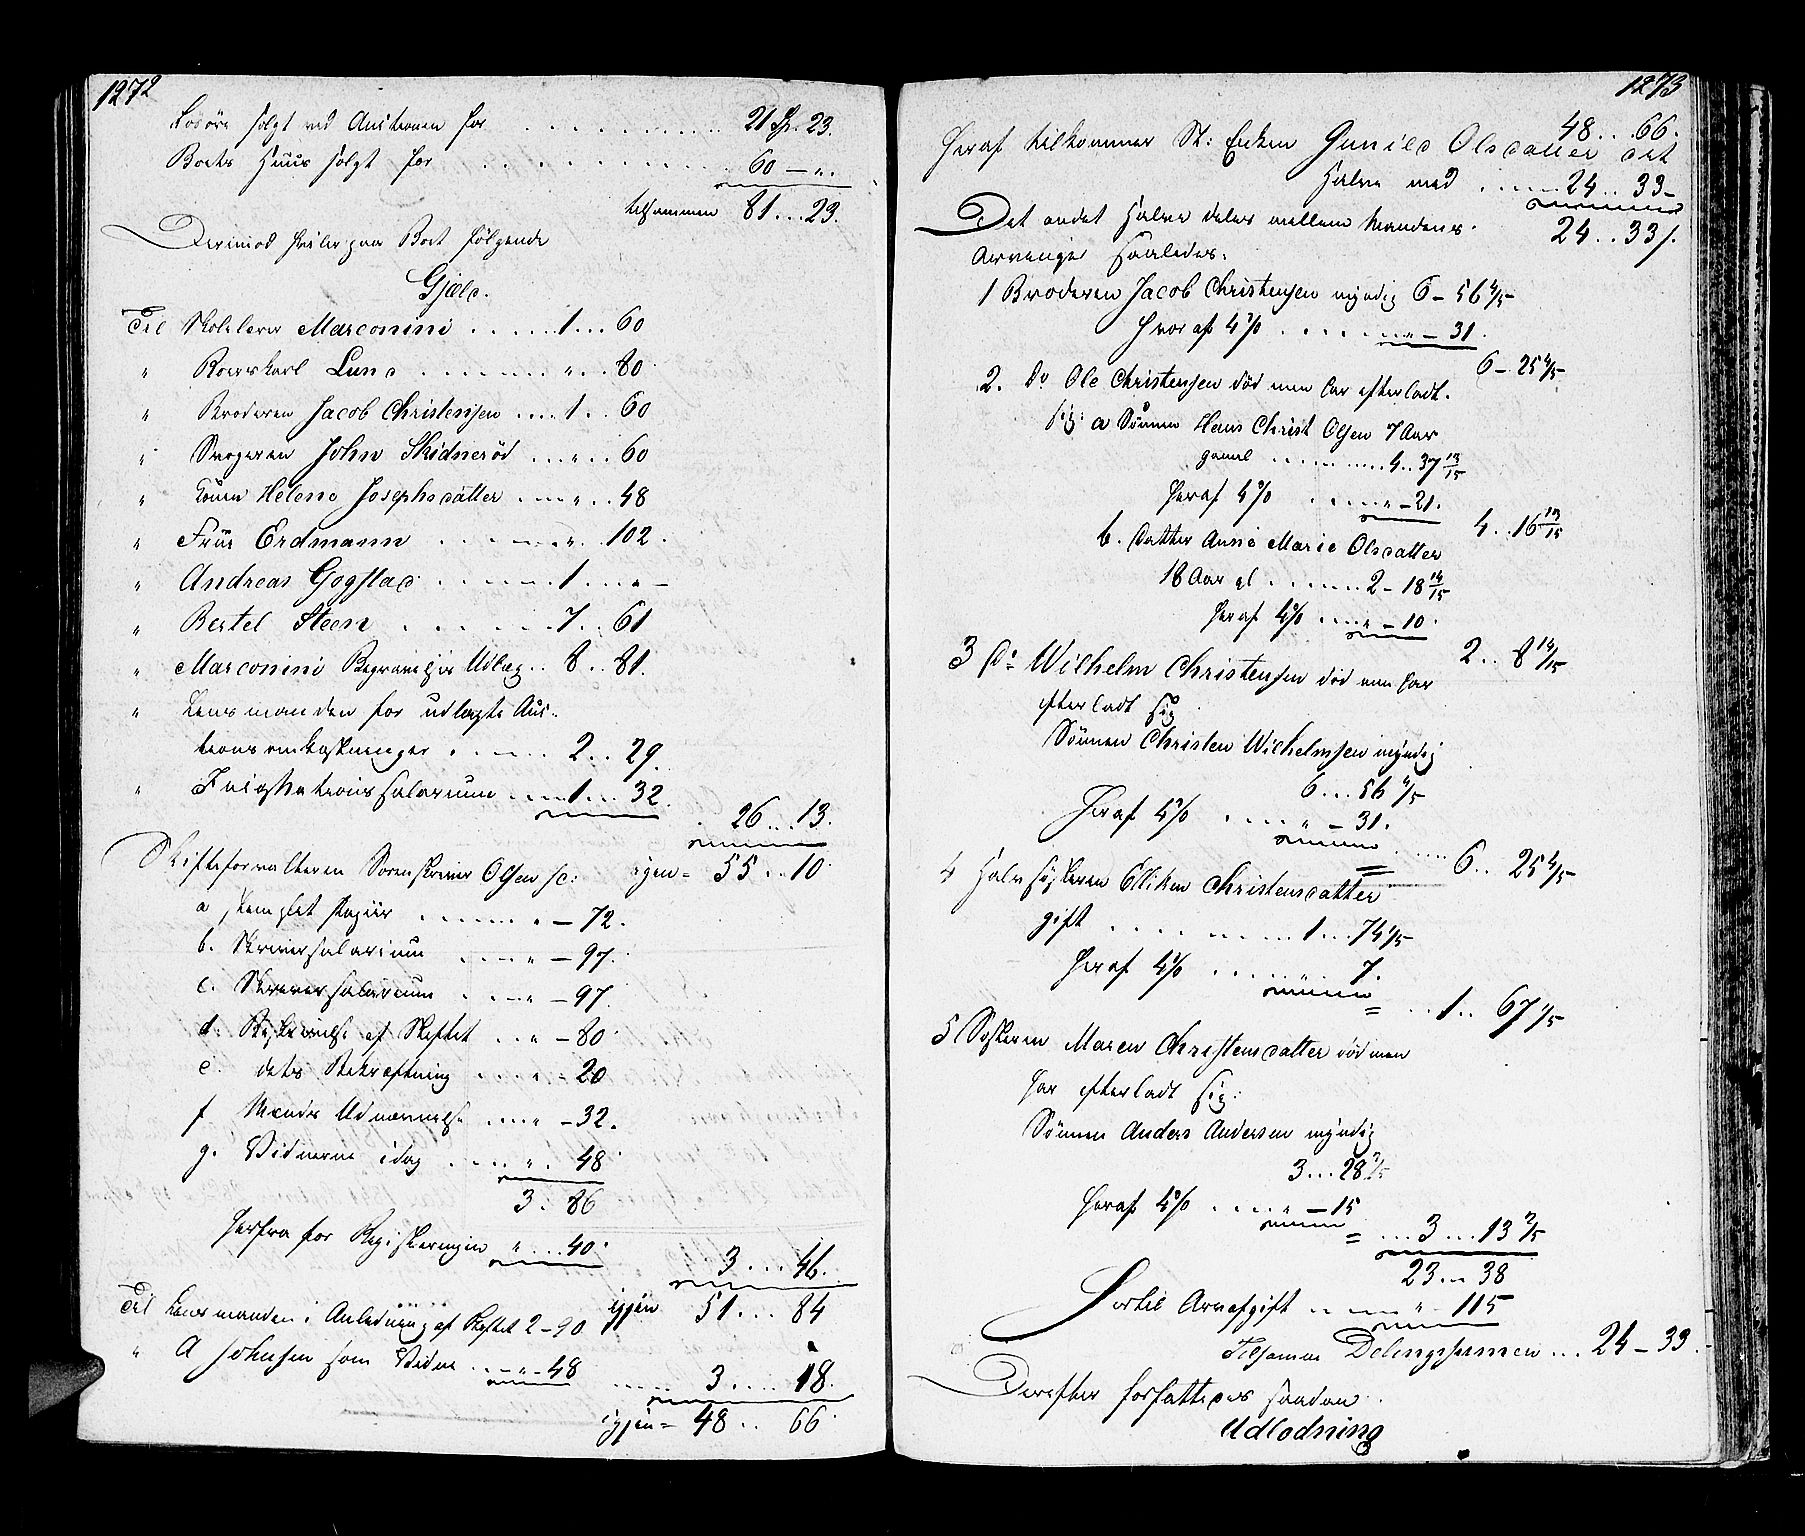 1272
Losøre solgt ved Auctionen for . . . . . 21 Sp. 23.
Boets Huus solgt for . . . . . 60 — „.
tilsammen 81 . . . 23.
Derimod hviler paa Boet følgende
Gjæld.
Til Skolelærer Marconini . . . . . 1 . . . 60
„ Kaarkarl Lund . . . . . „ . . 80
„ Broderen Jacob Christensen . . . . 1 . . 60
„ Svogeren John Skidnerød . . . „ . . 60
„ Konen Helene Josephsdatter . . . „ . . 48
„ Frue Erdmann . . . . . „ . . 102.
„ Andreas Gogstad . . . . . 1 . . „ —
„ Bertel Steen . . . . . 7 . . 61
„ Marconini Begravelses Udlæg . . 8 . . 81.
„ Lensmanden for udlagte Auc-
tionsomkostninger . . . . 2 . . 29.
„ Incassationssalarium . . . . 1 . . . 32.
26 . . . 13.
Skifteforvalteren Sorenskriver Olsen sc: igjen = 55 . . 10
a stemplet Papiir . . . . . „ — 72.
b. Skriversalarium . . . . „ — 97.
c. Skriversalarium . . . . „ — 97.
d. Beskrivelse af Skiftet . . „ — 80.
e. dets Bekræftning . . . . „ — 20
f Mænds Udnævnelse . . . „ — 32.
g. Vidnerne idag . . . . „ . 48.
3 . 86
herfra for Registeringen „ . . . 40.
3 . . . 46.
Til Lensmanden i Anledning af Skiftet 2 — 90 igjen 51 . . . 84
„ A Johnsen som Vidne . . . „ — 48 . . . . . 3 . . . . 18.
igjen = 48 . . 66.
1273
48 . . . 66.
Heraf tilkommer St: Enken Gunild Olsdatter det
Halve med . . . . . 24 . . 33 —
Det andet Halve deles mellem Mandens 24 . . 33/.
Arvinger saaledes:
1 Broderen Jacob Christensen myndig 6 — 56 4/5 —
hvoraf 4% . . . . . . „ — 31.
6 — 25 4/5
2. Do Ole Christensen død men har efterladt.
sig: a Sønnen Hans Christ Olsen 7 Aar
gaml . . . . . . . . 4 . . 37 13/15
heraf 4% . . . . „ — 21.
4 . . 16 13/15
b. Datter Anne Marie Olsdatter
18 Aar gl . . . . . . 2 — 18 14/15
heraf 4% . . . . „ — 10.
2 . . 8 14/15
3 Do Wilhelm Christensen død men har
efterladt sig
Sønnen Christen Wilhelmsen myndig
6 . . . 56 4/5
heraf 4% . . . . . „ — 31.
6 . . 25 4/5
4 Halvsøsteren Elliken Christensdatter
gift . . . . . . . . . 1 . . . 74 1/5
heraf 4% . . . . . „ . . . 7.
= . . 1 . . 67 1/5
5 Søsteren Maren Christensdatter død men
har efterladt sig:
Sønnen Anders Andersen myndig
3 . . . 28 2/5
heraf 4% . . . . . „ — 15
= . . . 3 . . . 13 2/5
23 . . „ 38
Hertil Arveafgift . . . . . „ — 115
Tilsamme Delingssummen . . . 24 — 33.
Derefter forfattedes saadan
Udlodning